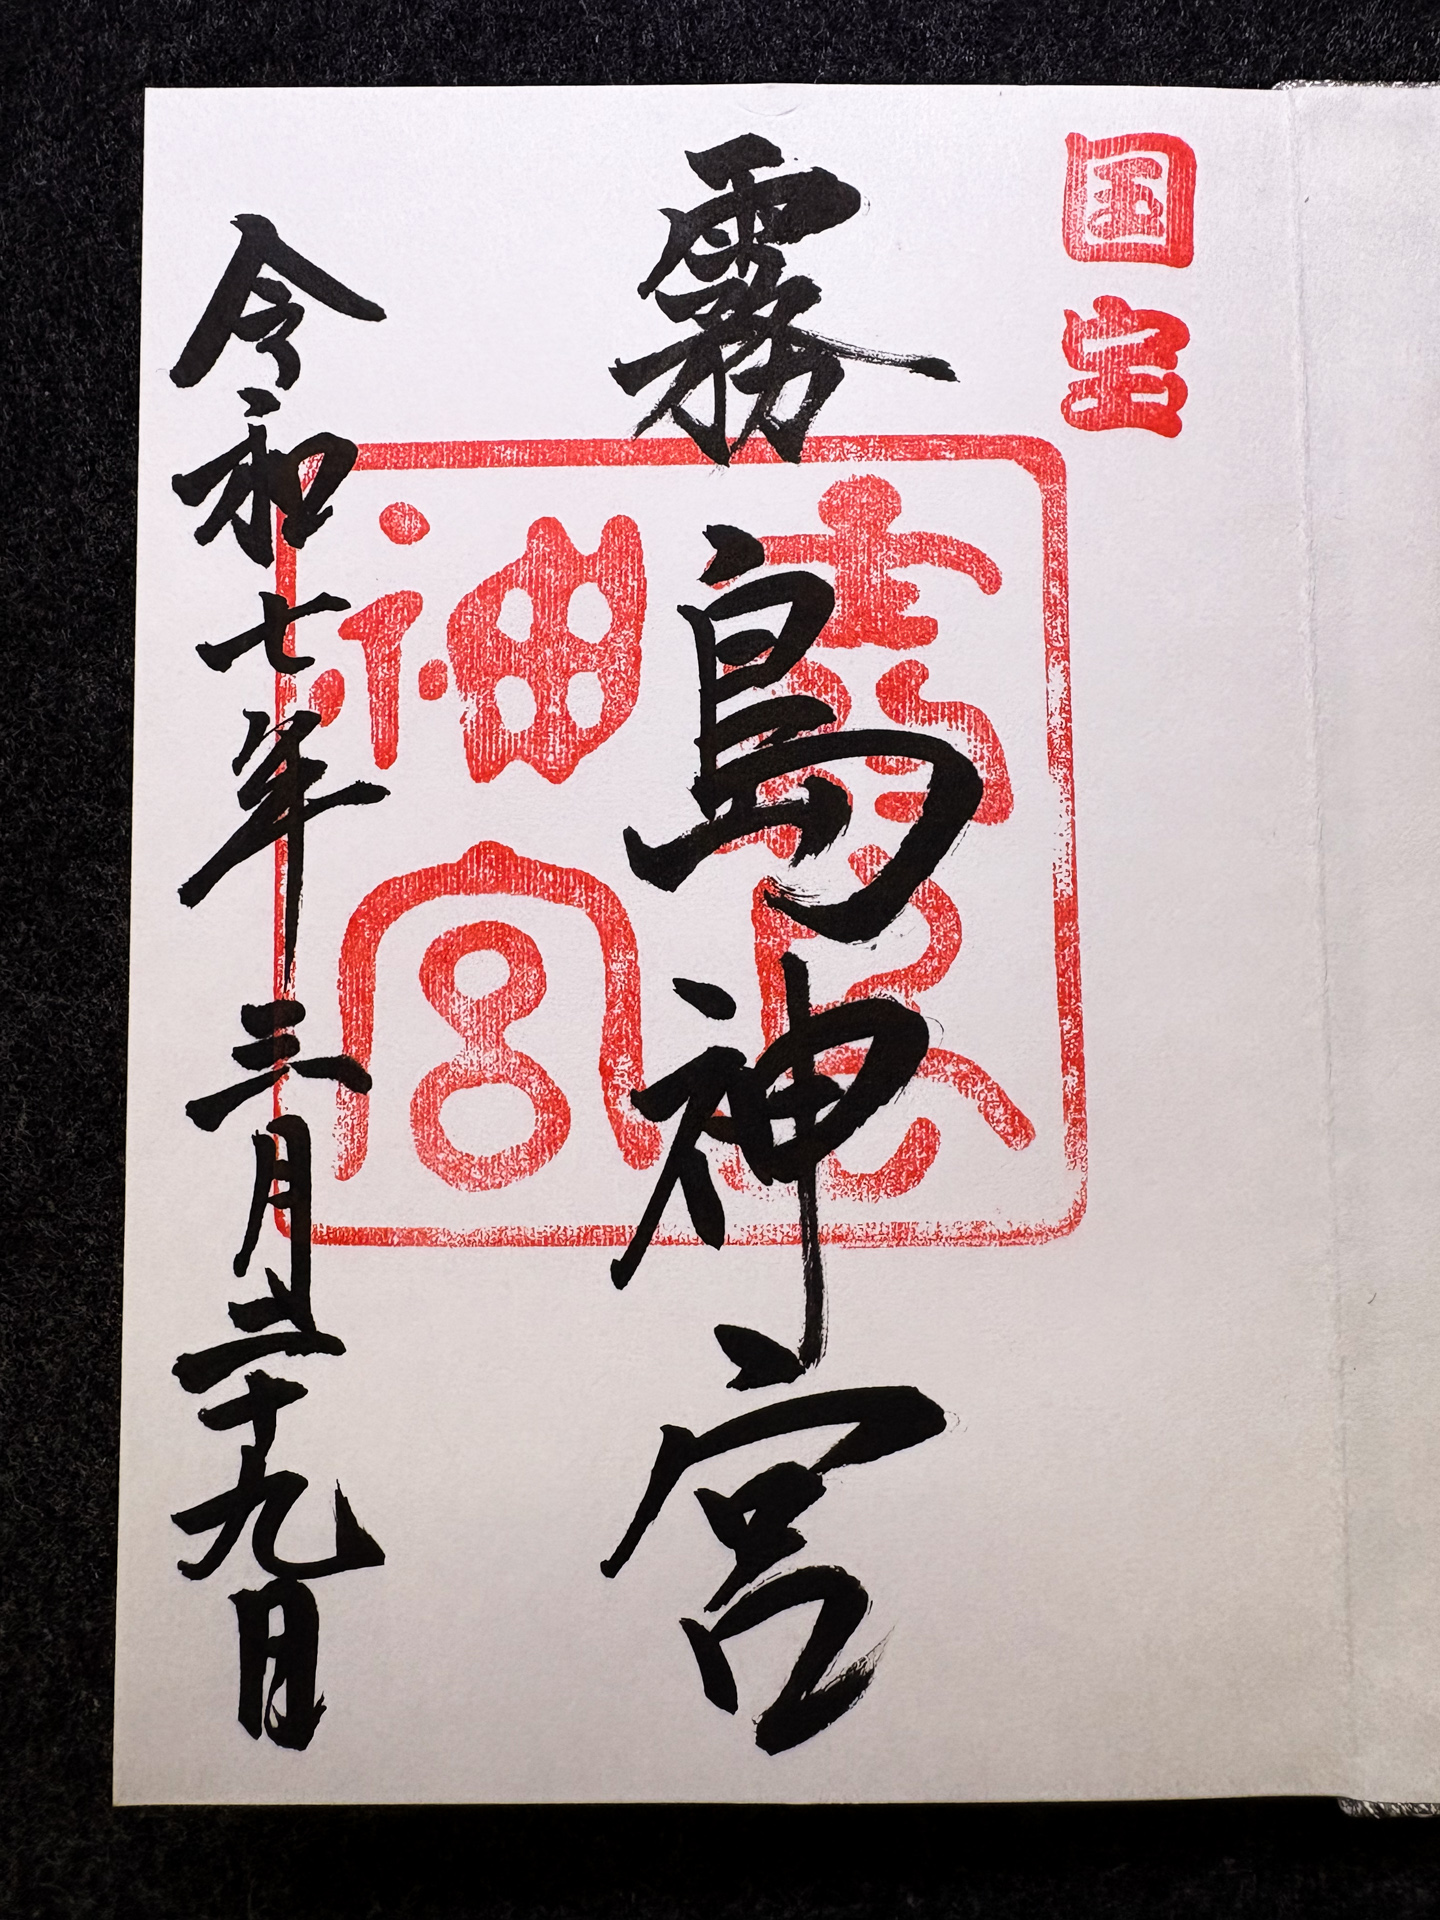 国宝
霧島神宮
霧島神宮
令和七年三月二十九日